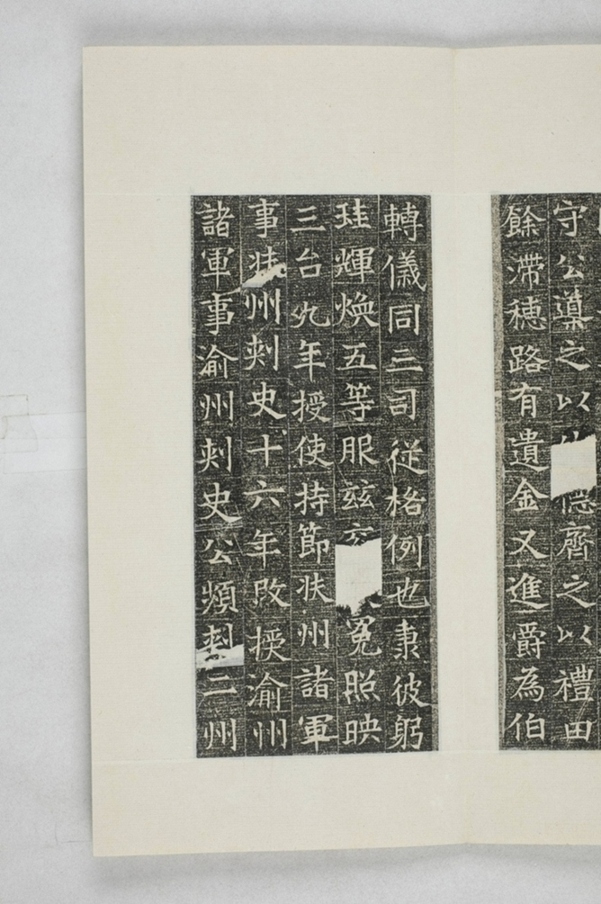 守公䕫之以德齊之以禮田
餘滯穗路有遺金又進爵為伯
轉儀同三司從格例也秉彼躬
珪輝煥五等服兹冕照映
三台九年授使持節狀州諸軍
事州刾史十六年改授渝州
諸軍事渝州刾史公頻二州